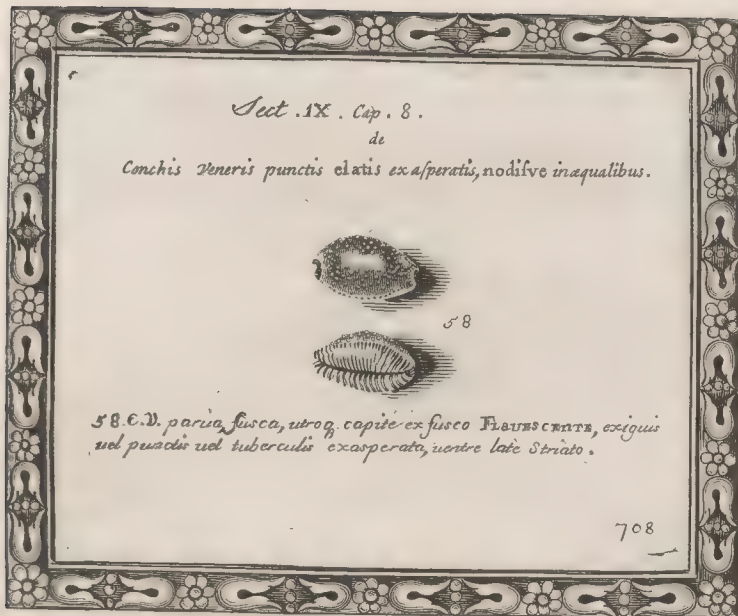 Sect. IX. Cap. 8.
de
Conchis Veneris punctis elatis exasperatis, nodisve inæqualibus.
58
58. C.V. parva, fusca, utroq capite ex fusco FLAVESCENTE, exiguis
vel punctis vel tuberculis exasperata, ventre late Striato.
708